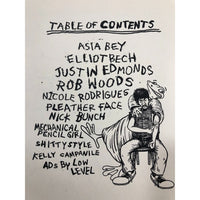 TABLE OF CONTENTS
ASIA BEY
ELLIOT BECH
JUSTIN EDMONDS
ROB WOODS
NICOLE RODRIGUES
PLEATHER FACE
NICK BUNCH
MECHANICAL
PENCIL GIRL
SHITTYSTYLE
KELLY CAMPANILE
ADS BY LOW
LEVEL